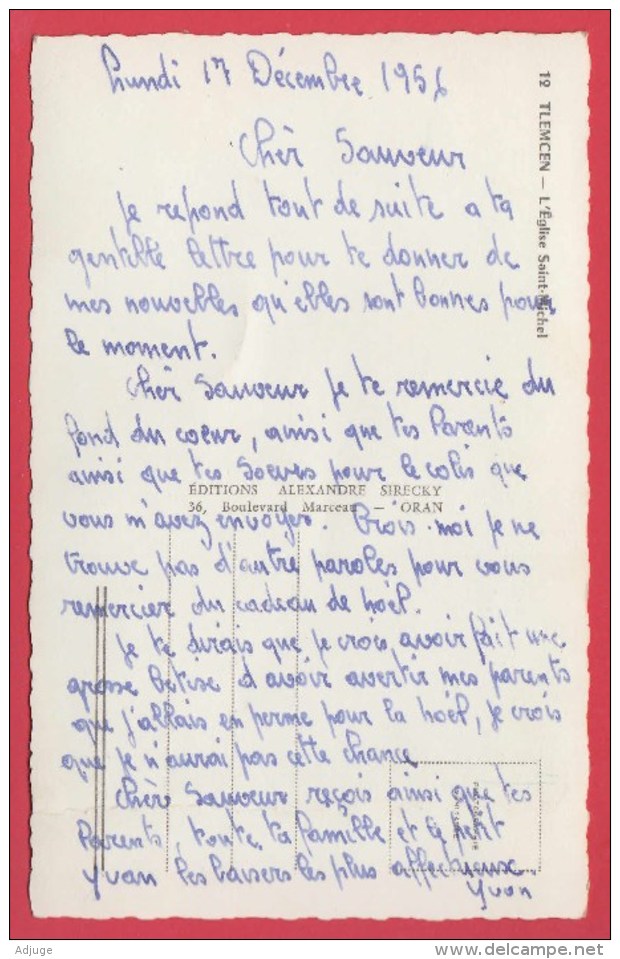 Lundi 17 Décembre 1956
Chèr Sauveur
Je repond tout de suite a ta
gentille lettre pour te donner de
mes nouvelles qu'elles sont bonnes pour
le moment.
Chèr Sauveur je te remercie du
fond du coeur, ainsi que tes Parents
ainsi que tes Soeurs pour le colis que
vous m'avez envoyer. Crois-moi je ne
trouve pas d'autre paroles pour vous
remercier du cadeau de noël.
Je te dirais que je crois avoir fait une
grosse betise d'avoir avertir mes parents
que j'allais en perme pour la noël, je crois
que je n'aurai pas cette chance
Chèr Sauveur reçois ainsi que tes
Parents, toute ta famille et le petit
Yvan les baisers les plus affectueux.
Yvon
12 TLEMCEN — L'Église Saint-Michel
ÉDITIONS ALEXANDRE SIRECKY
36, Boulevard Marceau — ORAN
Adjuge
www.delcampe.net